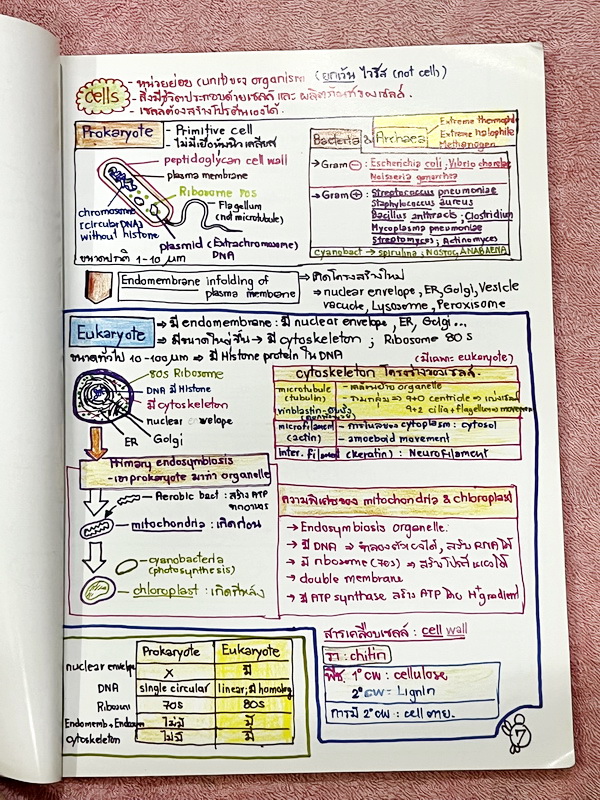 cells
- หน่วยย่อย (unit) ของ organism (ยกเว้น ไวรัส (not cell)
- สิ่งมีชีวิตประกอบด้วยเซลล์ และ ผลิตภัณฑ์ของเซลล์.
- เซลล์ต้องสร้างโปรตีนเองได้.
Prokaryote
- Primitive cell
- ไม่มีเยื่อหุ้มนิวเคลียส
peptidoglycan cell wall
plasma membrane
Ribosome 70S
Flagellum
(not microtubule)
chromosome
(circular DNA)
without histone
plasmid (Extrachromosome)
DNA
ขนาดปกติ 1-10 µm
Bacteria & Archaea
Extreme thermophile
Extreme halophile
Methanogen
→ Gram ⊖ : Escherichia coli, Vibrio cholerae
Neisseria gonorrhea
→ Gram ⊕ : Streptococcus pneumoniae
Staphylococcus aureus
Bacillus anthracis ; Clostridium
Mycoplasma pneumoniae
Streptomyces ; Actinomyces
cyanobact → spirulina ; NOSTOC, ANABAENA
Endomembrane infolding of
plasma membrane
⇒ เกิดโครงสร้างใหม่
→ nuclear envelope, ER, Golgi, Vesicle
vacuole, Lysosome, Peroxisome
Eukaryote
→ มี endomembrane : มี nuclear envelope, ER, Golgi ...
⇒ มีขนาดใหญ่ขึ้น → มี cytoskeleton ; Ribosome 80S
ขนาดทั่วไป 10-100 µm ⇒ มี Histone protein ใน DNA
(มีเฉพาะ eukaryote)
80S Ribosome
DNA มี Histone
มี cytoskeleton
nuclear envelope
Golgi
ER
cytoskeleton โครงร่างของเซลล์.
microtubule
(tubulin)
vinblastin
- เคลื่อนย้าย organelle
9+0 centriole ⇒ แบ่งเซลล์
9+2 cilia+flagellum ⇒ movement
microfilament
(actin)
- การไหลของ cytoplasm : cytosol
- amoeboid movement
Inter. filament (keratin) : Neurofilament
Primary endosymbiosis
- เอา prokaryote มาทำ organelle
Aerobic bact : สร้าง ATP
mitochondria : เกิดก่อน
cyanobacteria
(photosynthesis)
chloroplast : เกิดทีหลัง
ความพิเศษของ mitochondria & chloroplast
→ Endosymbiosis organelle.
→ มี DNA ⇒ จำลองตัวเองได้, สร้าง RNA ได้
→ มี ribosome (70s) ⇒ สร้างโปรตีนเองได้
→ double membrane
→ มี ATP synthase สร้าง ATP โดย H⁺ gradient
Prokaryote Eukaryote
nuclear envelope X มี
DNA single circular linear; มี homolog
Ribosome 70S 80S
Endomemb + Endosym ไม่มี มี
cytoskeleton ไม่มี มี
สารเคลือบเซลล์ : cell wall
รา : chitin
พืช. 1° CW : cellulose
2° CW = Lignin
การมี 2° CW : cell ตาย.
7